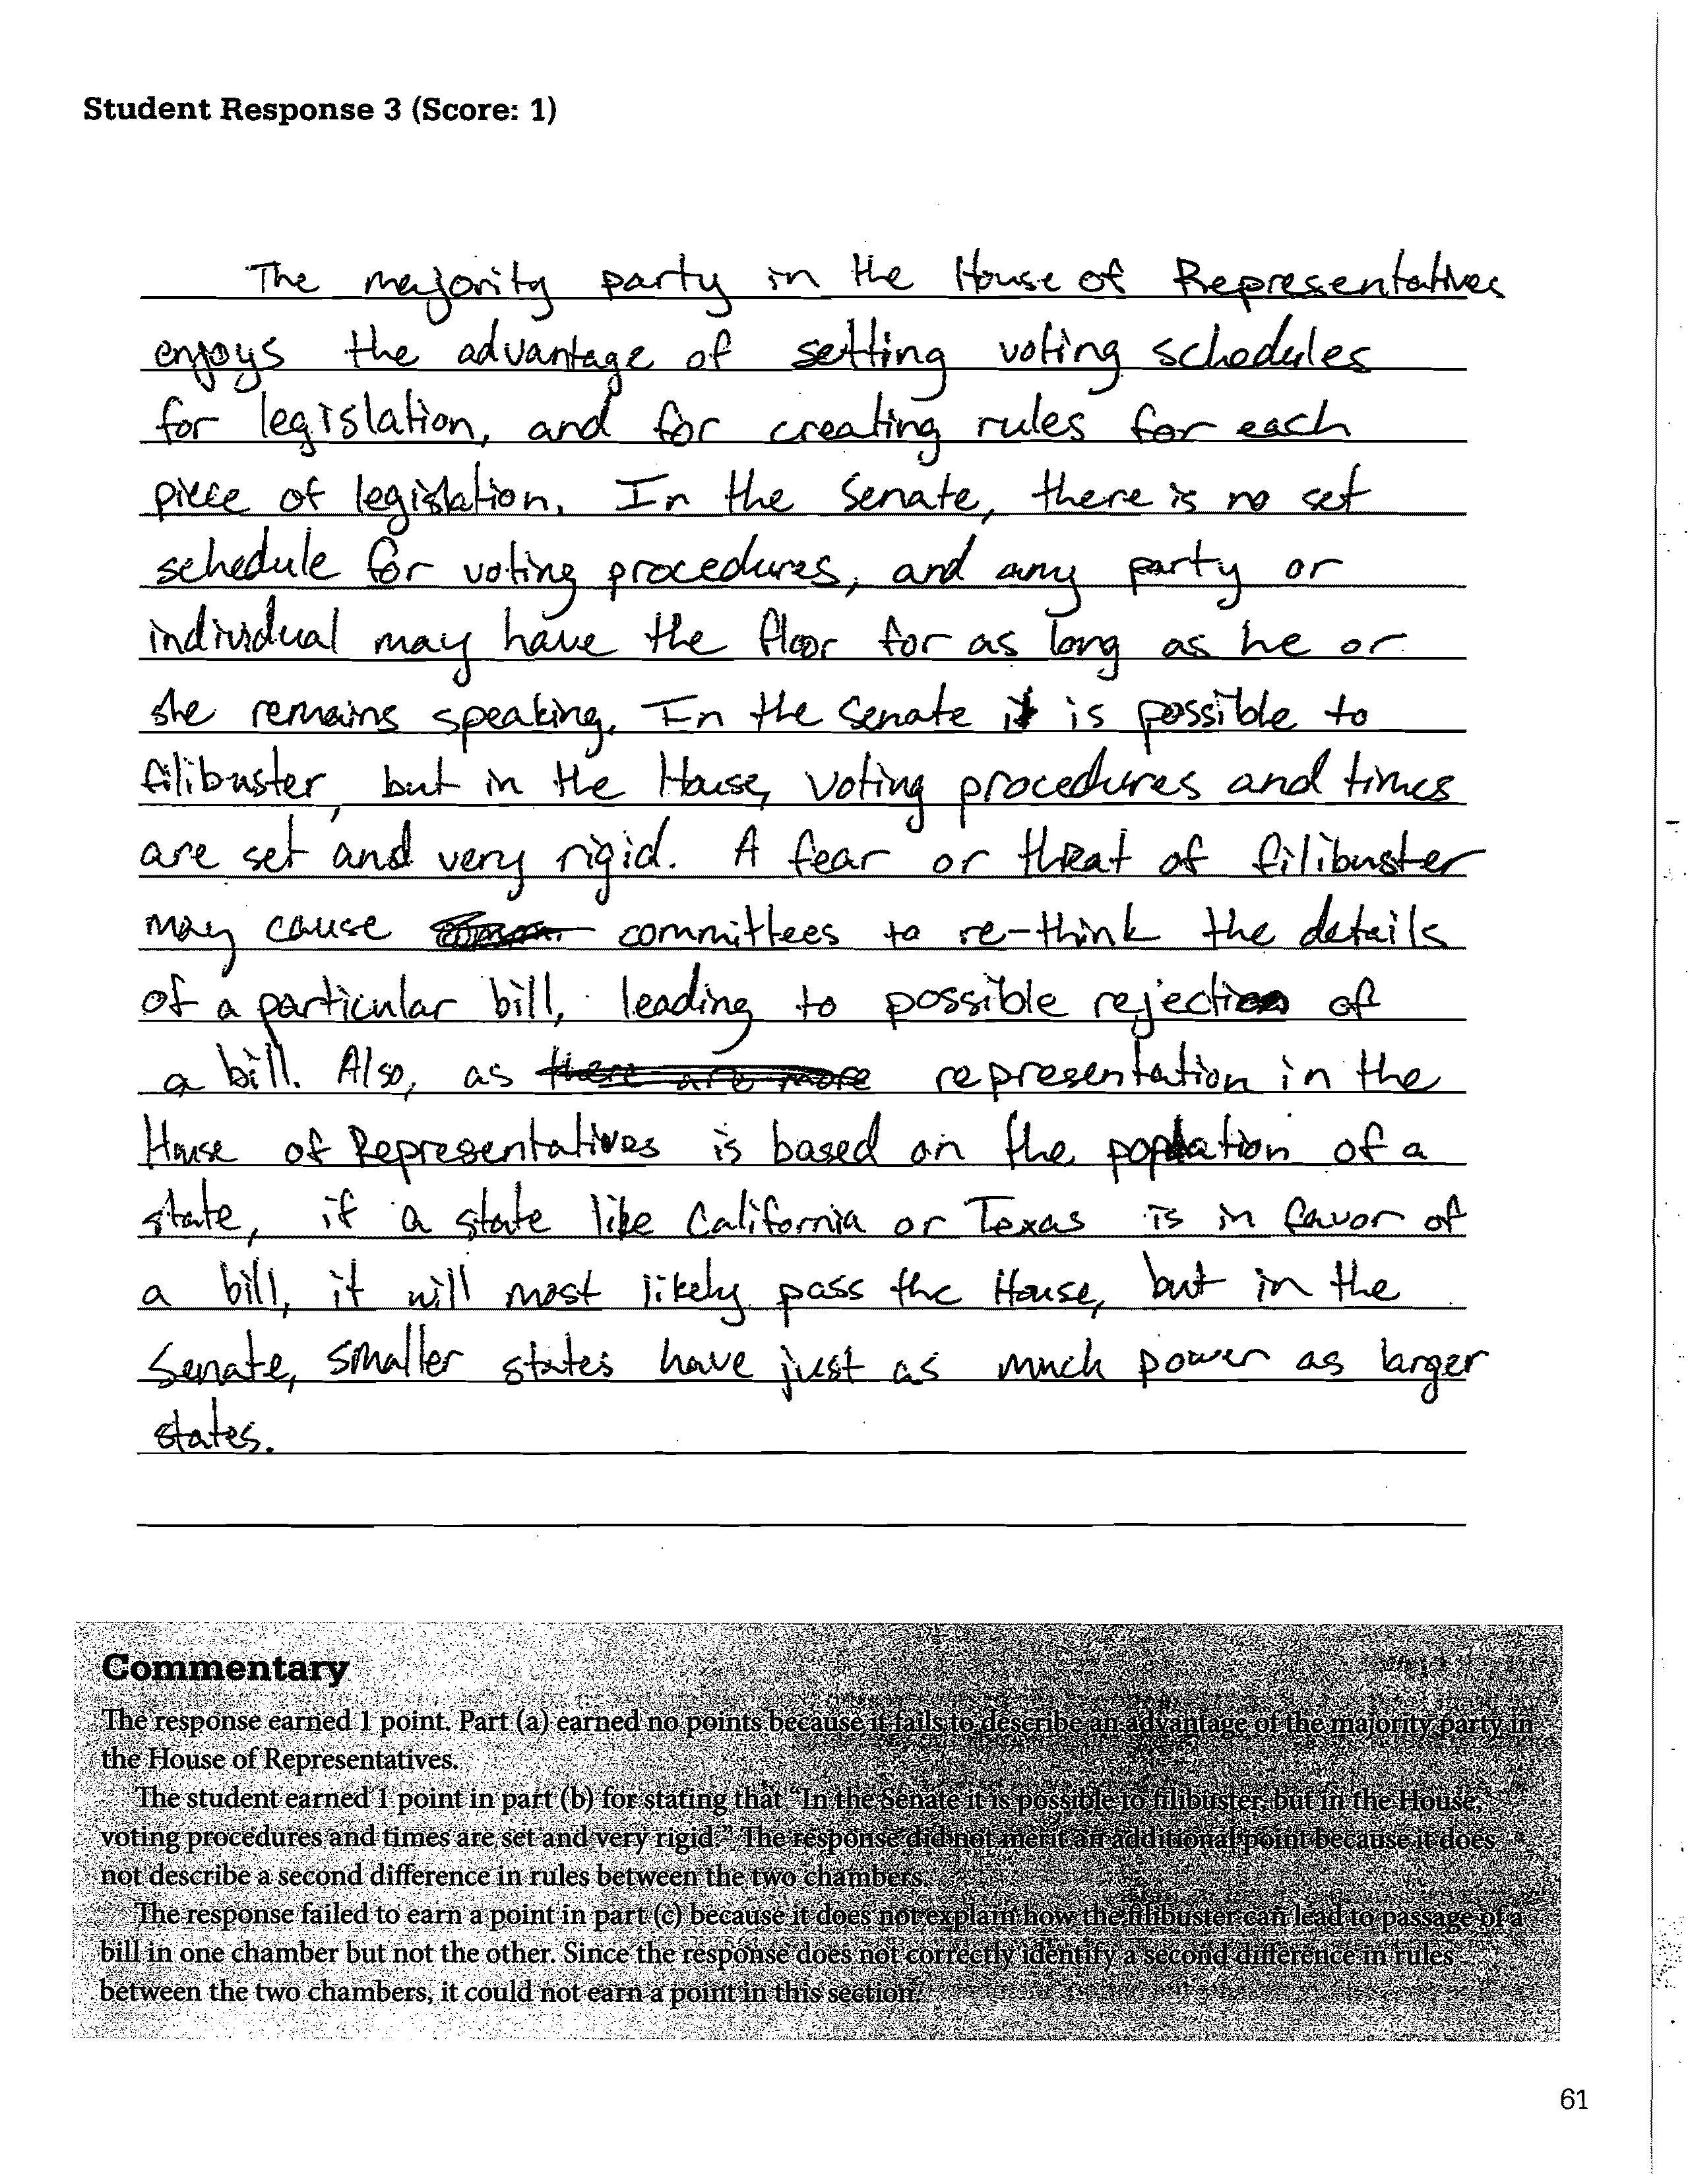 Student Response 3 (Score: 1)
The majority party in the House of Representatives
enjoys the advantage of setting voting schedules
for legislation, and for creating rules for each
piece of legislation. In the Senate, there is no set
schedule for voting procedures, and any party or
individual may have the floor for as long as he or
she remains speaking. In the Senate it is possible to
filibuster, but in the House, voting procedures and times
are set and very rigid. A fear or threat of filibuster
may cause committees to re-think the details
of a particular bill, leading to possible rejection of
a bill. Also, as there are more representation in the
House of Representatives is based on the population of a
state, if a state like California or Texas is in favor of
a bill, it will most likely pass the House, but in the
Senate, smaller states have just as much power as larger
states.
Commentary
The response earned 1 point. Part (a) earned no points because it fails to describe an advantage of the majority party in
the House of Representatives.
The student earned 1 point in part (b) for stating that "In the Senate it is possible to filibuster, but in the House,
voting procedures and times are set and very rigid." The response did not merit an additional point because it does
not describe a second difference in rules between the two chambers.
The response failed to earn a point in part (c) because it does not explain how the filibuster can lead to passage of a
bill in one chamber but not the other. Since the response does not correctly identify a second difference in rules
between the two chambers, it could not earn a point in this section.
61